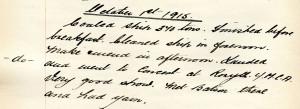 October 1st 1915.
Coaled ship 540 tons. Finished before
breakfast. Cleaned ship in forenoon.
-do- Make and mend in afternoon. Landed
and went to Concert at Rosyth Y.M.C.A.
Very good show. Met Bation there
and had yarn.